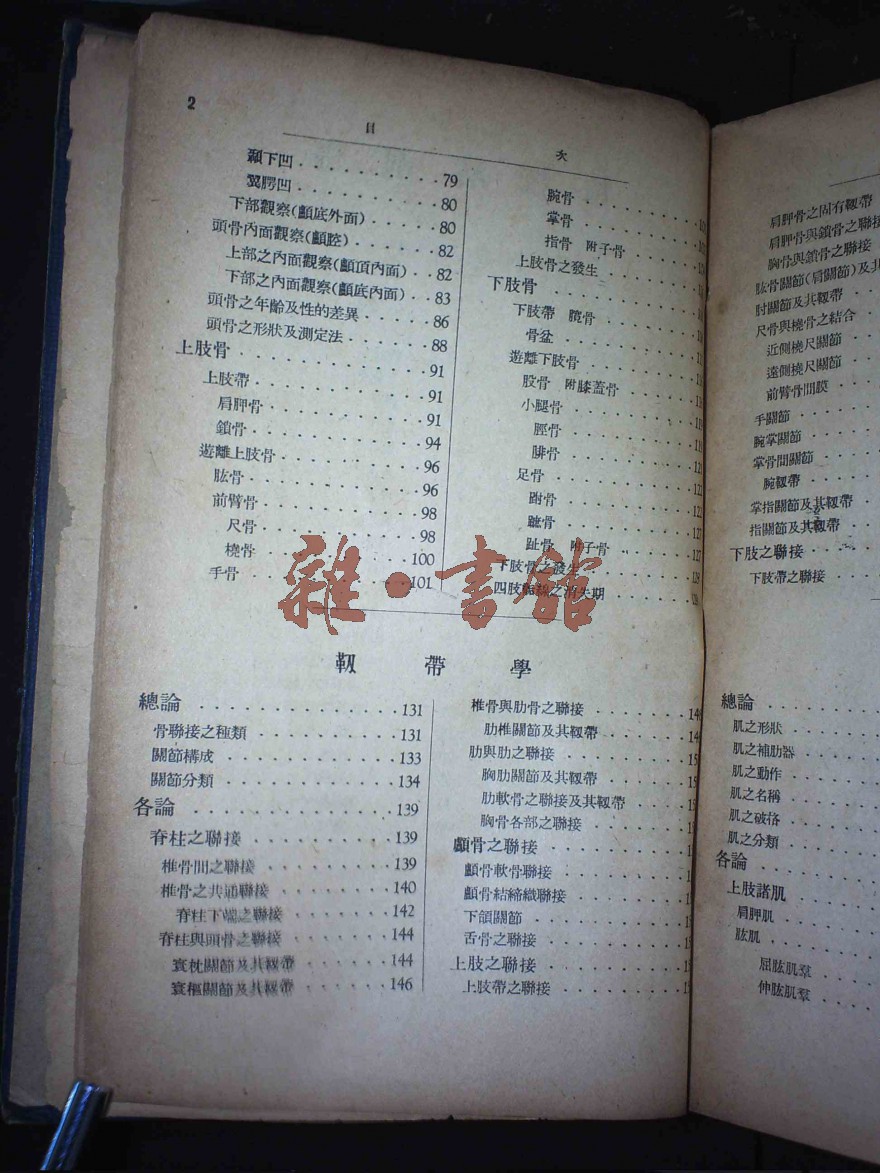 2
目 次
顳下凹 79
翼腭凹 80
下部觀察(顱底外面) 80
頭骨內面觀察(顱腔) 82
上部之內面觀察(顱頂內面) 82
下部之內面觀察(顱底內面) 83
頭骨之年齡及性的差異 86
頭骨之形狀及測定法 88
上肢骨 91
上肢帶 91
肩胛骨 91
鎖骨 94
遊離上肢骨 96
肱骨 96
前臂骨 98
尺骨 98
橈骨 100
手骨 101
腕骨
掌骨
指骨 附子骨
上肢骨之發生
下肢骨
下肢帶 髖骨
骨盆
遊離下肢骨
股骨 附膝蓋骨
小腿骨
脛骨
腓骨 121
足骨 122
跗骨 122
蹠骨 127
趾骨 附子骨 127
下肢骨之發生 129
四肢骺線之消失期
雜·書館
靱帶學
總論 131
骨聯接之種類 131
關節構成 133
關節分類 134
各論 139
脊柱之聯接 139
椎骨間之聯接 139
椎骨之共通聯接 140
脊柱下端之聯接 142
脊柱與頭骨之聯接 144
寰枕關節及其靱帶 144
寰樞關節及其靱帶 146
椎骨與肋骨之聯接
肋椎關節及其靱帶
肋與肋之聯接
胸肋關節及其靱帶
肋軟骨之聯接及其靱帶
胸骨各部之聯接
顱骨之聯接
顱骨軟骨聯接
顱骨結締織聯接
下頜關節
舌骨之聯接
上肢之聯接
上肢帶之聯接
肩胛骨之固有靱帶
肩胛骨與鎖骨之聯接
胸骨與鎖骨之聯接
肱骨關節(肩關節)及其
肘關節及其靱帶
尺骨與橈骨之結合
近側橈尺關節
遠側橈尺關節
前臂骨間膜
手關節
腕掌關節
掌骨間關節
腕靱帶
掌指關節及其靱帶
指關節及其靱帶
下肢之聯接
下肢帶之聯接
總論
肌之形狀
肌之補肋器
肌之動作
肌之名稱
肌之破格
肌之分類
各論
上肢諸肌
肩胛肌
肱肌
屈肱肌羣
伸肱肌羣